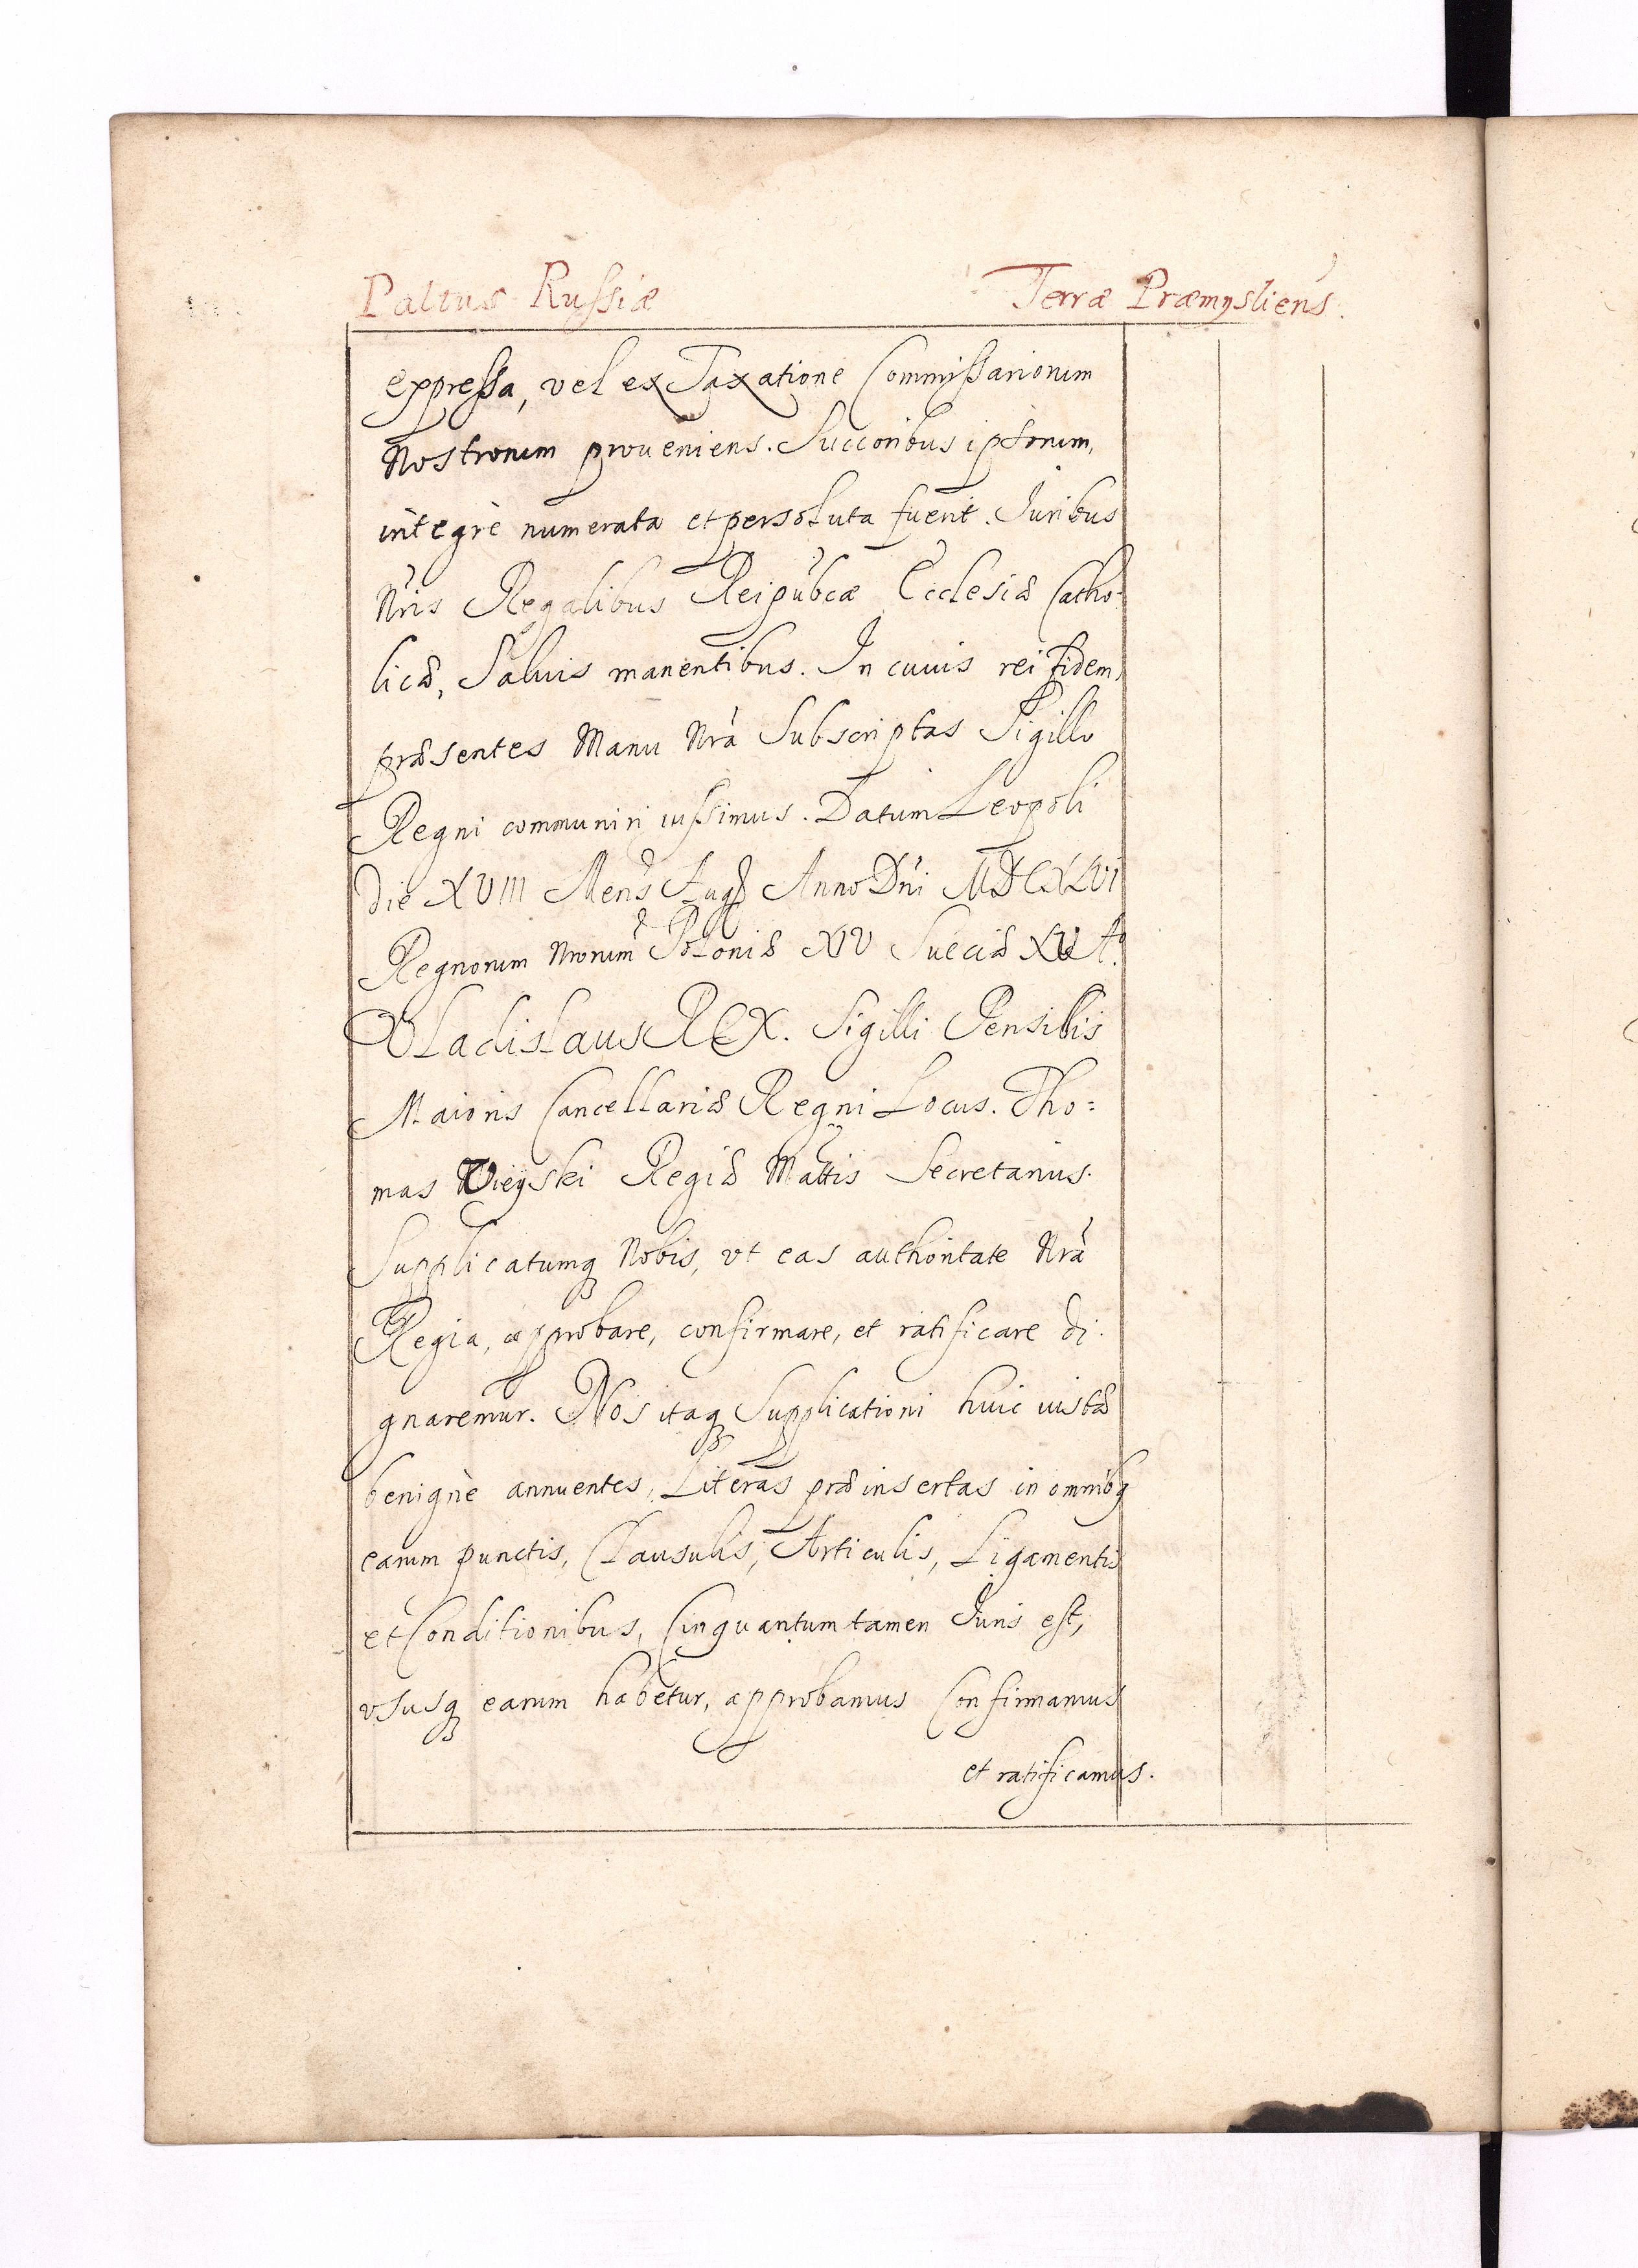 Paltus Russiæ Terræ Præmysliens.
expressa, vel ex Taxatione Commissariorum
Nostrorum proueniens. Succoribus ipsorum,
integrè numerata et persoluta fuerit. Juribus
Nris Regalibus Reipubcæ Ecclesiæ Catho-
licæ, Saluis manentibus. In cuius rei fidem,
præsentes Manu Nrâ Subscriptas Sigillo
Regni communiri iussimus. Datum Leopoli
die XVIII Mens Aug Anno Dni MDCXLVI
Regnorum Nrorum Poloniæ XIV Sueciæ XV Aº.
Vladislaus REX. Sigilli Pensilis
Maioris Cancellariæ Regni Locus. Tho=
mas Vieyski Regiæ Mattis Secretarius.
Supplicatumq Nobis, vt eas authoritate Nrâ
Regia, approbare, confirmare, et ratificare di-
gnaremur. Nos itaq Supplicationi huic iustæ
benignè annuentes, Literas præinsertas in omnibq
earum punctis, Clausulis, Articulis, Ligamentis
et Conditionibus, Cinquantum tamen Juris est,
vsusq earum habetur, approbamus Confirmamus
et ratificamus.